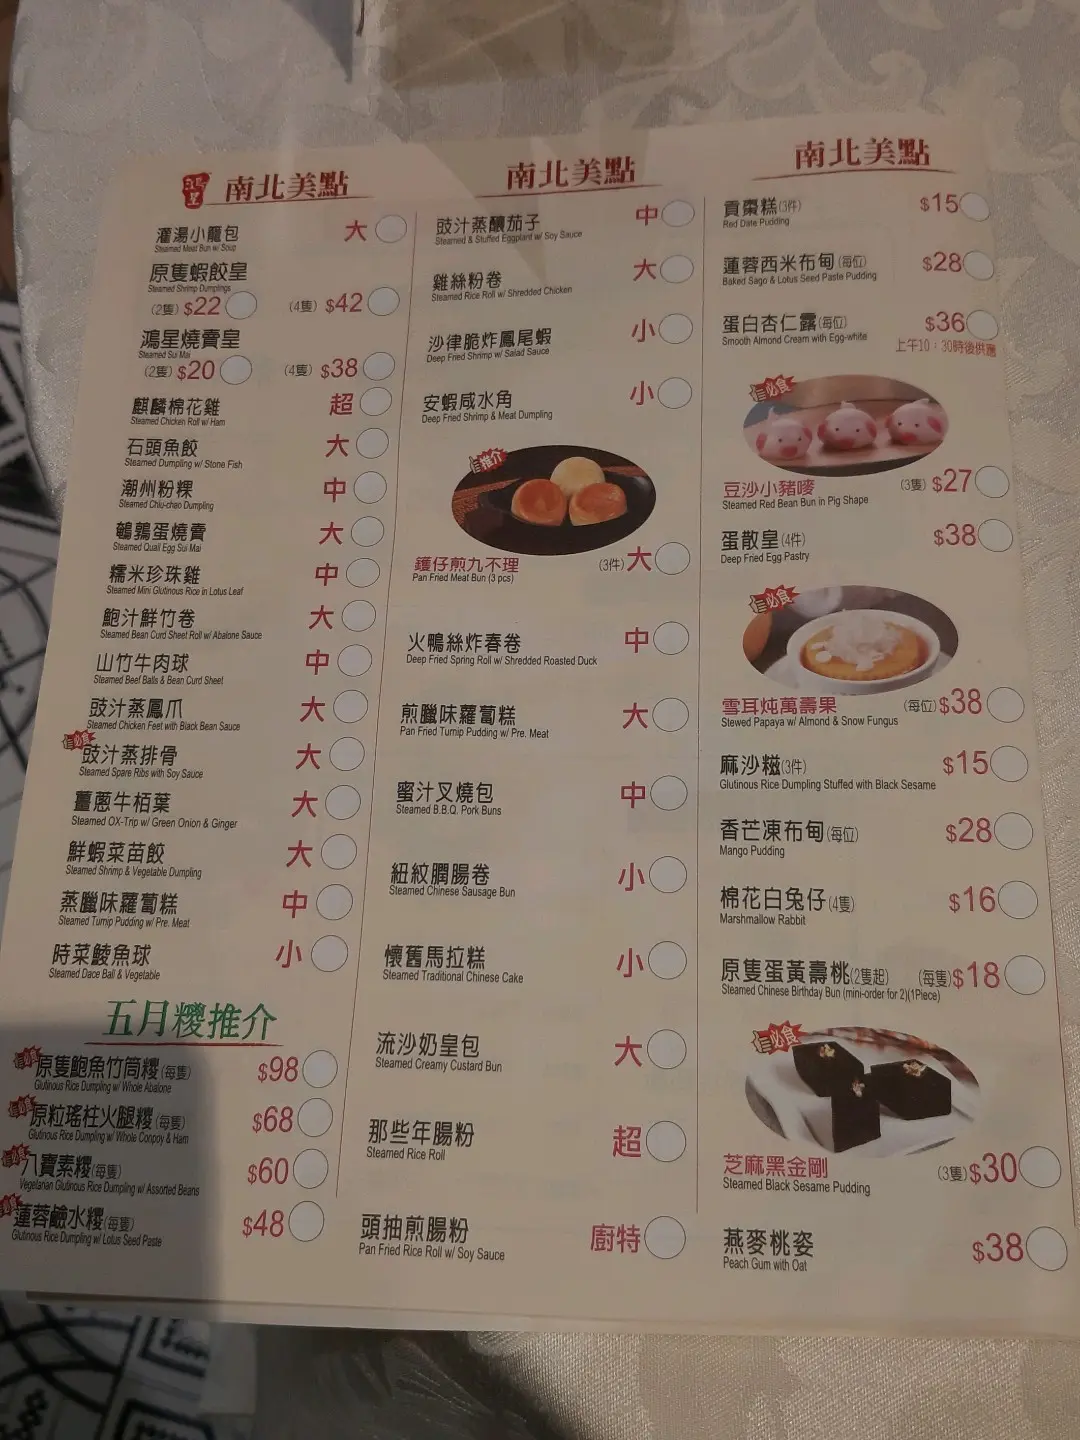 南北美點
灌湯小籠包 大
Steamed Meat Bun w/ Soup
原隻蝦餃皇
Steamed Shrimp Dumplings
(2隻) $22 (4隻) $42
鴻星燒賣皇
Steamed Sui Mai
(2隻) $20 (4隻) $38
麒麟棉花雞 超
Steamed Chicken Roll w/ Ham
石頭魚餃 大
Steamed Dumpling w/ Stone Fish
潮州粉粿 中
Steamed Chiu-chao Dumpling
鵪鶉蛋燒賣 大
Steamed Quail Egg Sui Mai
糯米珍珠雞 中
Steamed Mini Glutinous Rice in Lotus Leaf
鮑汁鮮竹卷 大
Steamed Bean Curd Sheet Roll w/ Abalone Sauce
山竹牛肉球 中
Steamed Beef Balls & Bean Curd Sheet
豉汁蒸鳳爪 大
Steamed Chicken Feet with Black Bean Sauce
必食
豉汁蒸排骨 大
Steamed Spare Ribs with Soy Sauce
薑蔥牛栢葉 大
Steamed OX-Trip w/ Green Onion & Ginger
鮮蝦菜苗餃 大
Steamed Shrimp & Vegetable Dumpling
蒸臘味蘿蔔糕 中
Steamed Turnip Pudding w/ Pre. Meat
時菜鯪魚球 小
Steamed Dace Ball & Vegetable
五月糭推介
必食
原隻鮑魚竹筒糭(每隻) $98
Glutinous Rice Dumpling w/ Whole Abalone
必食
原粒瑤柱火腿糭(每隻) $68
Glutinous Rice Dumpling w/ Whole Conpoy & Ham
必食
八寶素糭(每隻) $60
Vegetarian Glutinous Rice Dumpling w/ Assorted Beans
蓮蓉鹼水糭(每隻) $48
Glutinous Rice Dumpling w/ Lotus Seed Paste
南北美點
豉汁蒸釀茄子 中
Steamed & Stuffed Eggplant w/ Soy Sauce
雞絲粉卷 大
Steamed Rice Roll w/ Shredded Chicken
沙律脆炸鳳尾蝦 小
Deep Fried Shrimp w/ Salad Sauce
安蝦咸水角 小
Deep Fried Shrimp & Meat Dumpling
推介
鑊仔煎九不理 (3件) 大
Pan Fried Meat Bun (3 pcs)
火鴨絲炸春卷 中
Deep Fried Spring Roll w/ Shredded Roasted Duck
煎臘味蘿蔔糕 大
Pan Fried Turnip Pudding w/ Pre. Meat
蜜汁叉燒包 中
Steamed B.B.Q. Pork Buns
紐紋膶腸卷 小
Steamed Chinese Sausage Bun
懷舊馬拉糕 小
Steamed Traditional Chinese Cake
流沙奶皇包 大
Steamed Creamy Custard Bun
那些年腸粉 超
Steamed Rice Roll
頭抽煎腸粉 廚特
Pan Fried Rice Roll w/ Soy Sauce
南北美點
貢棗糕(3件) $15
Red Date Pudding
蓮蓉西米布甸(每位) $28
Baked Sago & Lotus Seed Paste Pudding
蛋白杏仁露(每位) $36
Smooth Almond Cream with Egg-white
上午10：30時後供應
必食
豆沙小豬嘜 (3隻) $27
Steamed Red Bean Bun in Pig Shape
蛋散皇(4件) $38
Deep Fried Egg Pastry
必食
雪耳炖萬壽果 (每位) $38
Stewed Papaya w/ Almond & Snow Fungus
麻沙糍(3件) $15
Glutinous Rice Dumpling Stuffed with Black Sesame
香芒凍布甸(每位) $28
Mango Pudding
棉花白兔仔(4隻) $16
Marshmallow Rabbit
原隻蛋黃壽桃(2隻起) (每隻) $18
Steamed Chinese Birthday Bun (mini-order for 2)(1Piece)
必食
芝麻黑金剛 (3隻) $30
Steamed Black Sesame Pudding
燕麥桃姿 $38
Peach Gum with Oat